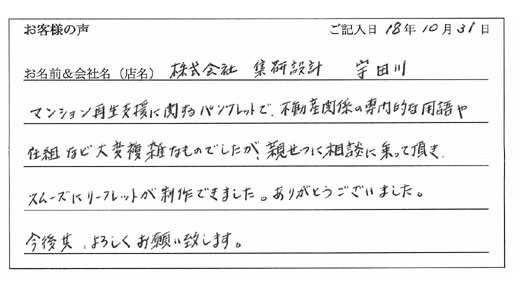 お客様の声 ご記入日 18年10月31日
お名前&会社名（店名） 株式会社 集研設計 宇田川
マンション再生支援に関するパンフレットで、不動産関係の専門的な用語や
仕組など大変複雑なものでしたが、親せつに相談に乗って頂き、
スムーズにリーフレットが制作できました。ありがとうございました。
今後共、よろしくお願い致します。